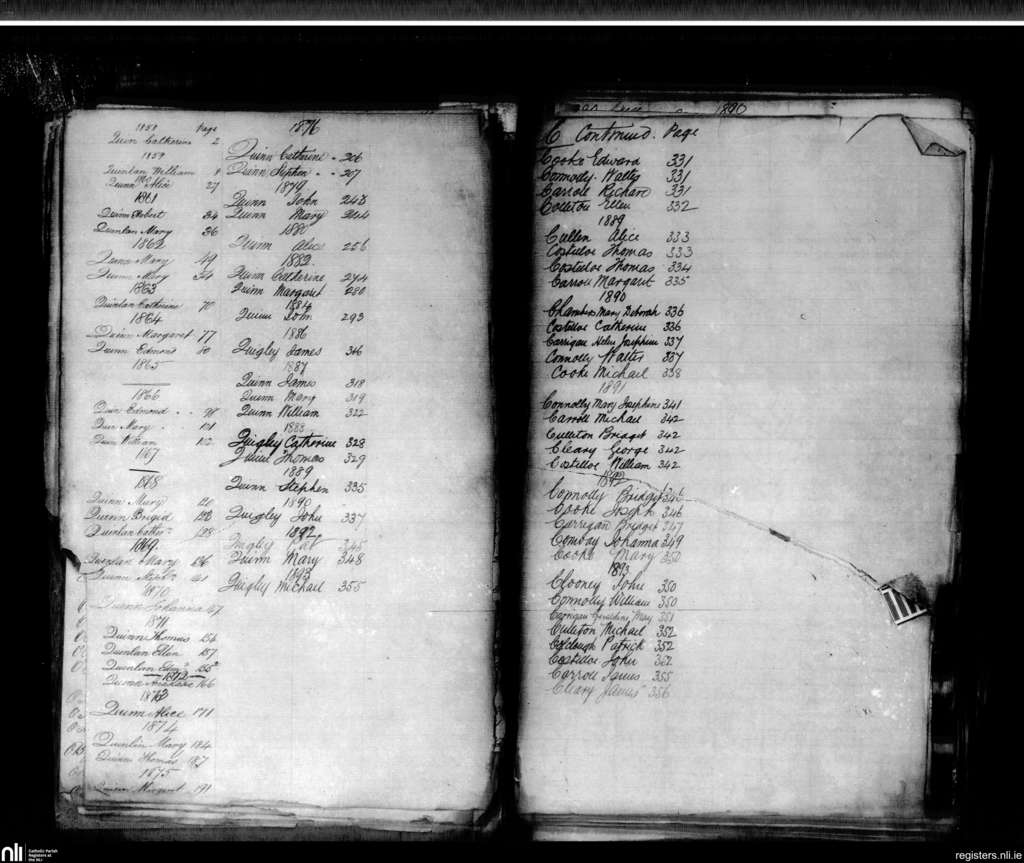 1859 Page
Quin Catherine 2
1859
Quinlan William 8
Quinn Alice 27
1861
Quinn Robert 34
Quinlan Mary 36
1862
Quinn Mary 49
Quinn Mary 54
1863
Quinlan Catherine 70
1864
Quinn Margaret 77
Quinn Edmond 80
1865
1866
Quin Edmond 98
Quin Mary 101
Quin William 102
1867
1868
Quinn Mary 120
Quinn Brigid
Quinlan Cathe 128
1869
Quinlan Mary 136
Quinn 41
1870
Quinn Johanna 47
1871
Quinn Thomas 154
Quinlan Ellen 157
Quinlan Edmd 158
1872
Quinn 166
1873
Quinn Alice 171
1874
Quinlin Mary 184
Quinn Thomas 187
1875
Quinn Margaret 191
1876
Quinn Catherine - 206
Quinn Stephen - - 207
1879
Quinn John 243
Quinn Mary 244
1880
Quinn Alice 256
1882.
Quinn Catherine 274
Quinn Margaret 280
1884
Quinn John 293
1886
Quigley James 316
1887
Quinn James 318
Quinn Mary 319
Quinn William 322
1888
Quigley Catherine 328
Quinn Thomas 329
1889
Quinn Stephen 335
1890
Quigley John 337
1892
Quigley Pat 345
Quinn Mary 348
1893
Quigley Michael 355
1890
C Continued. Page
Cooke Edward 331
Carmody Walter 331
Carroll Richard 331
Colleton Ellen 332
1889
Cullen Alice 333
Costelloe Thomas 333
Costelloe Thomas 334
Carroll Margaret 335
1890
Chambers Mary Deborah 336
Costelloe Catherine 336
Carrigan Helen Josephine 337
Connolly Walter 337
Cooke Michael 338
1891
Connolly Mary Josephine 341
Carroll Michael 342
Culleton Bridget 342
Cleary George 342
Costelloe William 342
1892
Connolly Bridget 346
Cooke Joseph 346
Carrigan Bridget 347
Conway Johanna 349
Cooke Mary 350
1893
Clooney John 350
Connolly William 350
Corrigan Geraldine Mary 351
Culleton Michael 352
Colclough Patrick 352
Costelloe John 352
Carroll James 355
Cleary James 356
nli Catholic Parish
Registers at
the NLI
registers.nli.ie